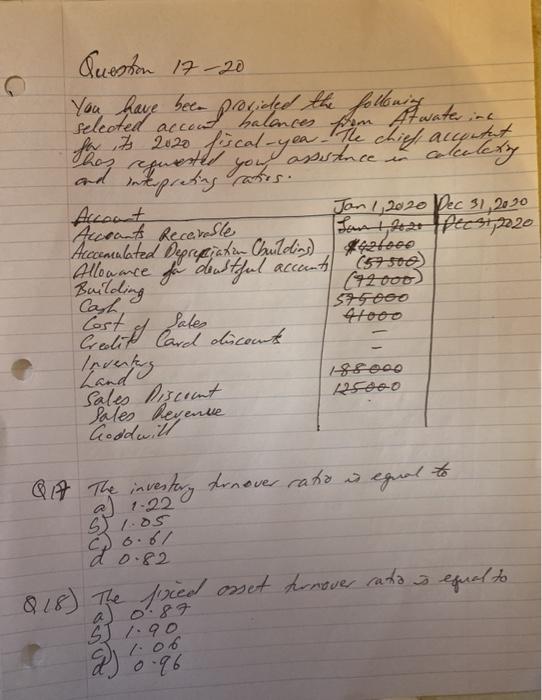 Question 17-20
You have been provided the following
selected account balances from Atwater inc
for its 2020 fiscal-year. The chief accountant
has requested your assistance in calculating
and interpreting ratios.
Jan 1, 2020 Dec 31, 2020
Account Jan 1, 2020 Dec 31, 2020
Accounts Receivables $426000
Accumulated Depreciation (building) (57500)
Allowance for doubtful accounts (72000)
Building 575000
Cash 41000
Cost of Sales -
Credit Card discounts -
Inventory 188000
Land 125000
Sales Discount
Sales Revenue
Goodwill
Q17 The inventory turnover ratio is equal to
a) 1.22
b) 1.05
c) 0.61
d 0.82
Q18) The fixed asset turnover ratio is equal to
a) 0.87
b) 1.90
c) 1.06
d) 0.96